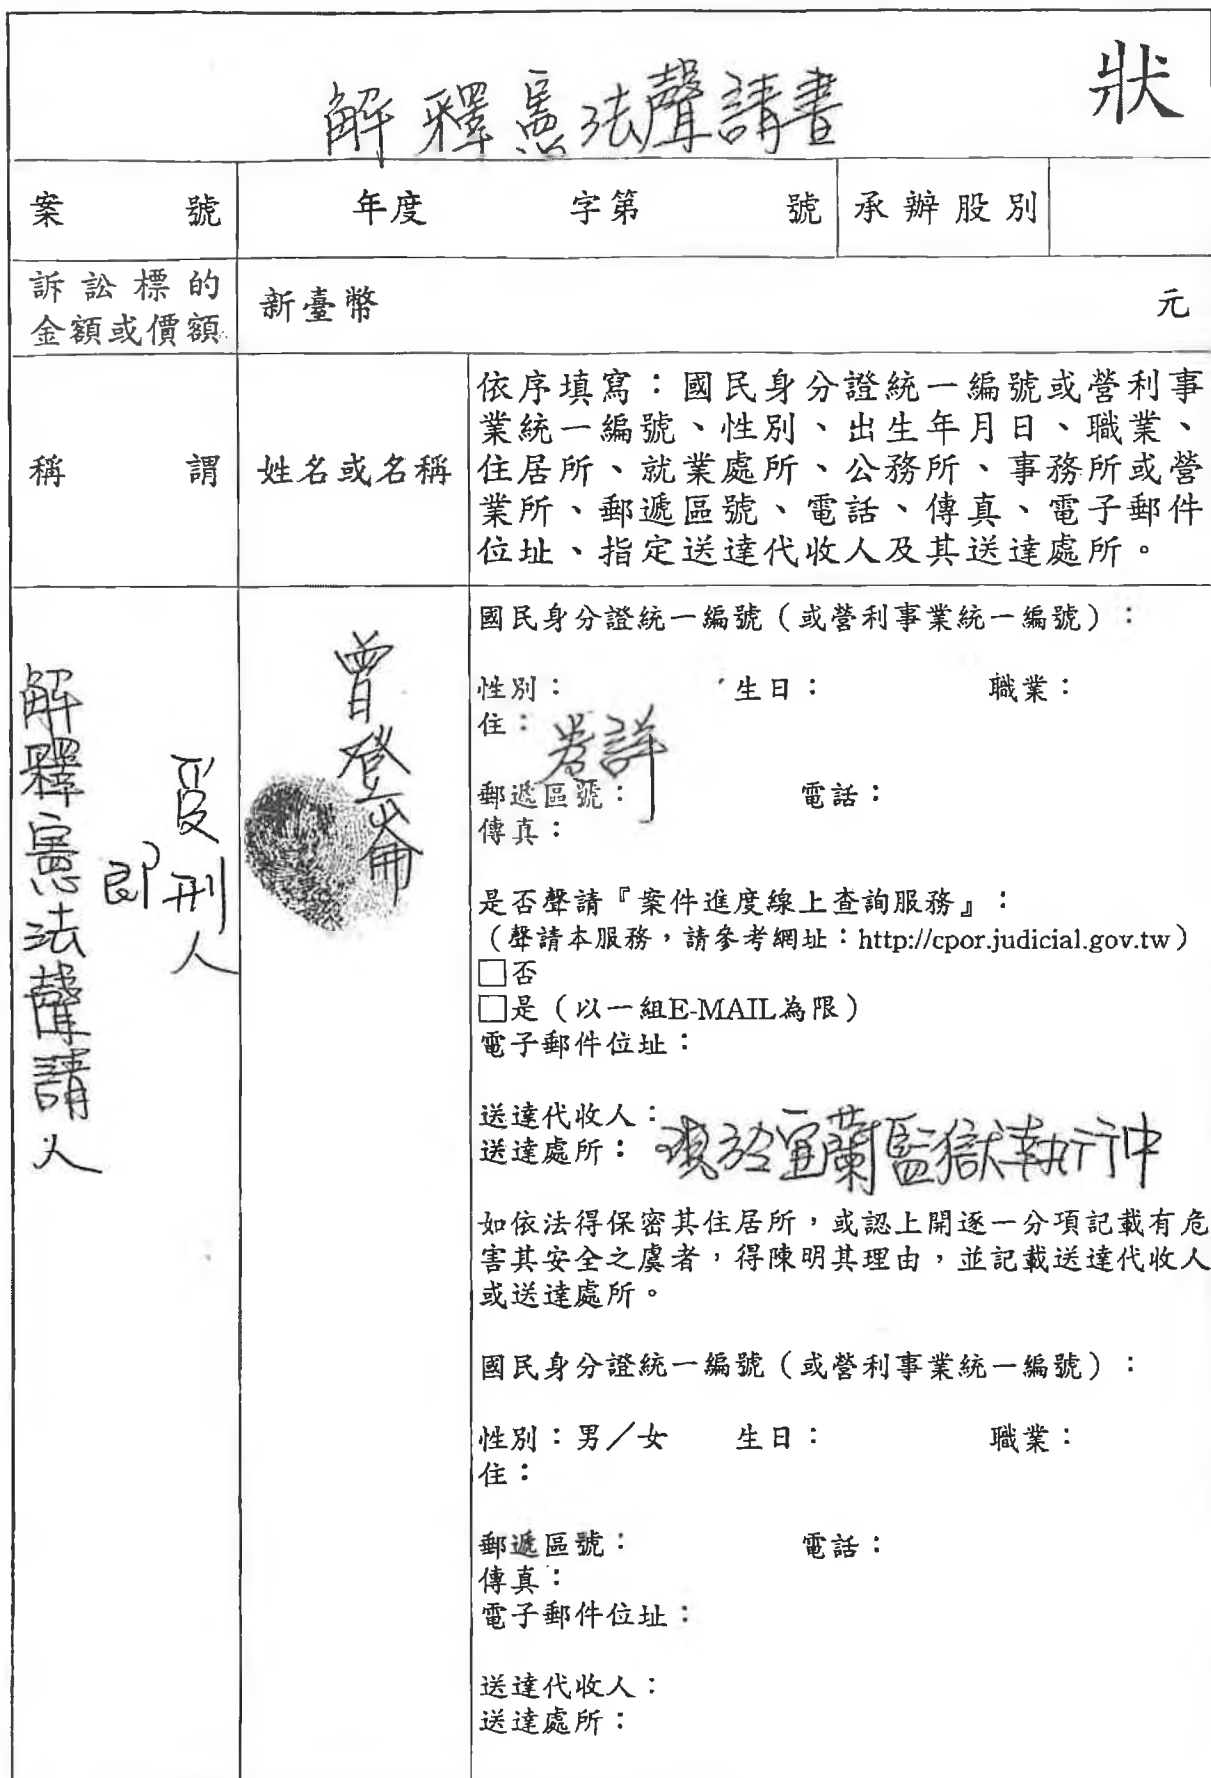 解釋憲法聲請書 狀
案號 年度 字第 號 承辦股別
訴訟標的
金額或價額 新臺幣 元
稱謂 姓名或名稱
依序填寫：國民身分證統一編號或營利事
業統一編號、性別、出生年月日、職業、
住居所、就業處所、公務所、事務所或營
業所、郵遞區號、電話、傳真、電子郵件
位址、指定送達代收人及其送達處所。
解釋憲法聲請人
即
受刑人
曾登崙
國民身分證統一編號（或營利事業統一編號）：
性別： 生日： 職業：
住：卷詳
郵遞區號： 電話：
傳真：
是否聲請『案件進度線上查詢服務』：
（聲請本服務，請參考網址：http://cpor.judicial.gov.tw）
□否
□是（以一組E-MAIL為限）
電子郵件位址：
送達代收人：
送達處所：現於宜蘭監獄執行中
如依法得保密其住居所，或認上開逐一分項記載有危
害其安全之虞者，得陳明其理由，並記載送達代收人
或送達處所。
國民身分證統一編號（或營利事業統一編號）：
性別：男／女 生日： 職業：
住：
郵遞區號： 電話：
傳真：
電子郵件位址：
送達代收人：
送達處所：